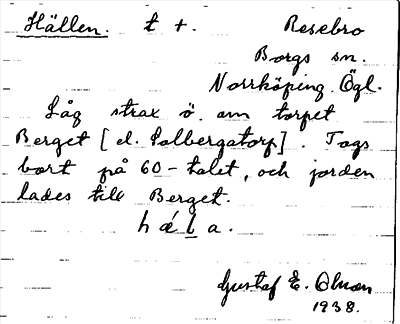 Hällen. t +. Resebro
Borgs sn.
Norrköping. Ögl.
Låg strax ö. om torpet
Berget [el. Palbergatorp]. Togs
bort på 60-talet, och jorden
lades till Berget.
hǽla.
Gustaf E. Olsson
1938.